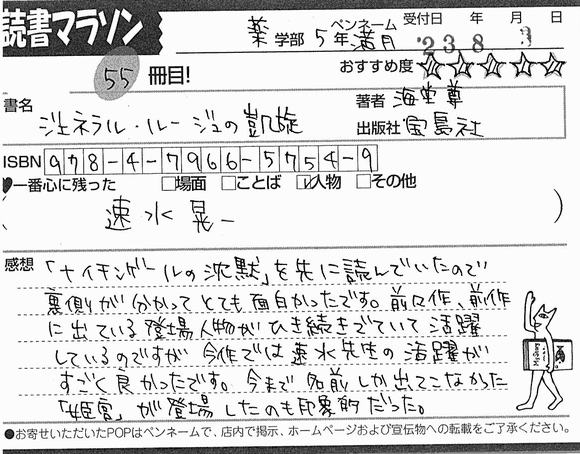 読書マラソン
薬 学部 5年 ペンネーム 満月 受付日 年 月 日
'23.8.
55 冊目! おすすめ度 ☆☆☆☆☆
書名 ジェネラル・ルージュの凱旋
著者 海堂尊
出版社 宝島社
ISBN 978-4-7966-5754-9
♥一番心に残った □場面 □ことば ☑人物 □その他
速水晃一 )
感想 「ナイチンゲールの沈黙」を先に読んでいたので
裏側が分かってとても面白かったです。前々作、前作
に出ている登場人物がひき続きでていて活躍
しているのですが今作では速水先生の活躍が
すごく良かったです。今まで名前しか出てこなかった
「姫宮」が登場したのも印象的だった。
●お寄せいただいたPOPはペンネームで、店内で掲示、ホームページおよび宣伝物への転載をご了承ください。